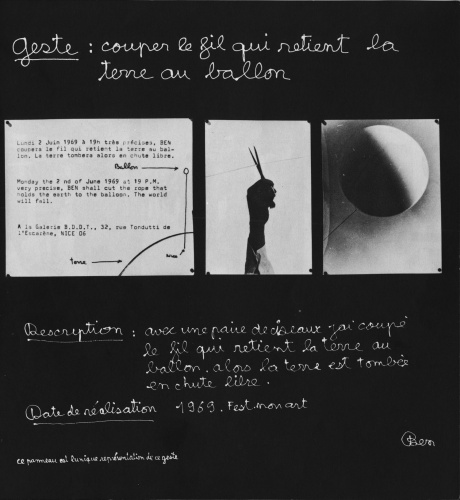 geste : couper le fil qui retient la
terre au ballon
Lundi 2 Juin 1969 à 19h très précises, BEN
coupera le fil qui retient la terre au bal-
lon. La terre tombera alors en chute libre.
Ballon
Monday the 2 nd of June 1969 at 19 P.M.
very precise, BEN shall cut the rope that
holds the earth to the balloon. The world
will fall.
A la Galerie B.D.D.T., 32, rue Tondutti de
l'Escarène, NICE 06
terre
Description : avec une paire de ciseaux j'ai coupé
le fil qui retient la terre au
ballon. alors la terre est tombée
en chute libre.
Date de réalisation 1969. Fest. non art
Ben
ce panneau est l'unique représentation de ce geste